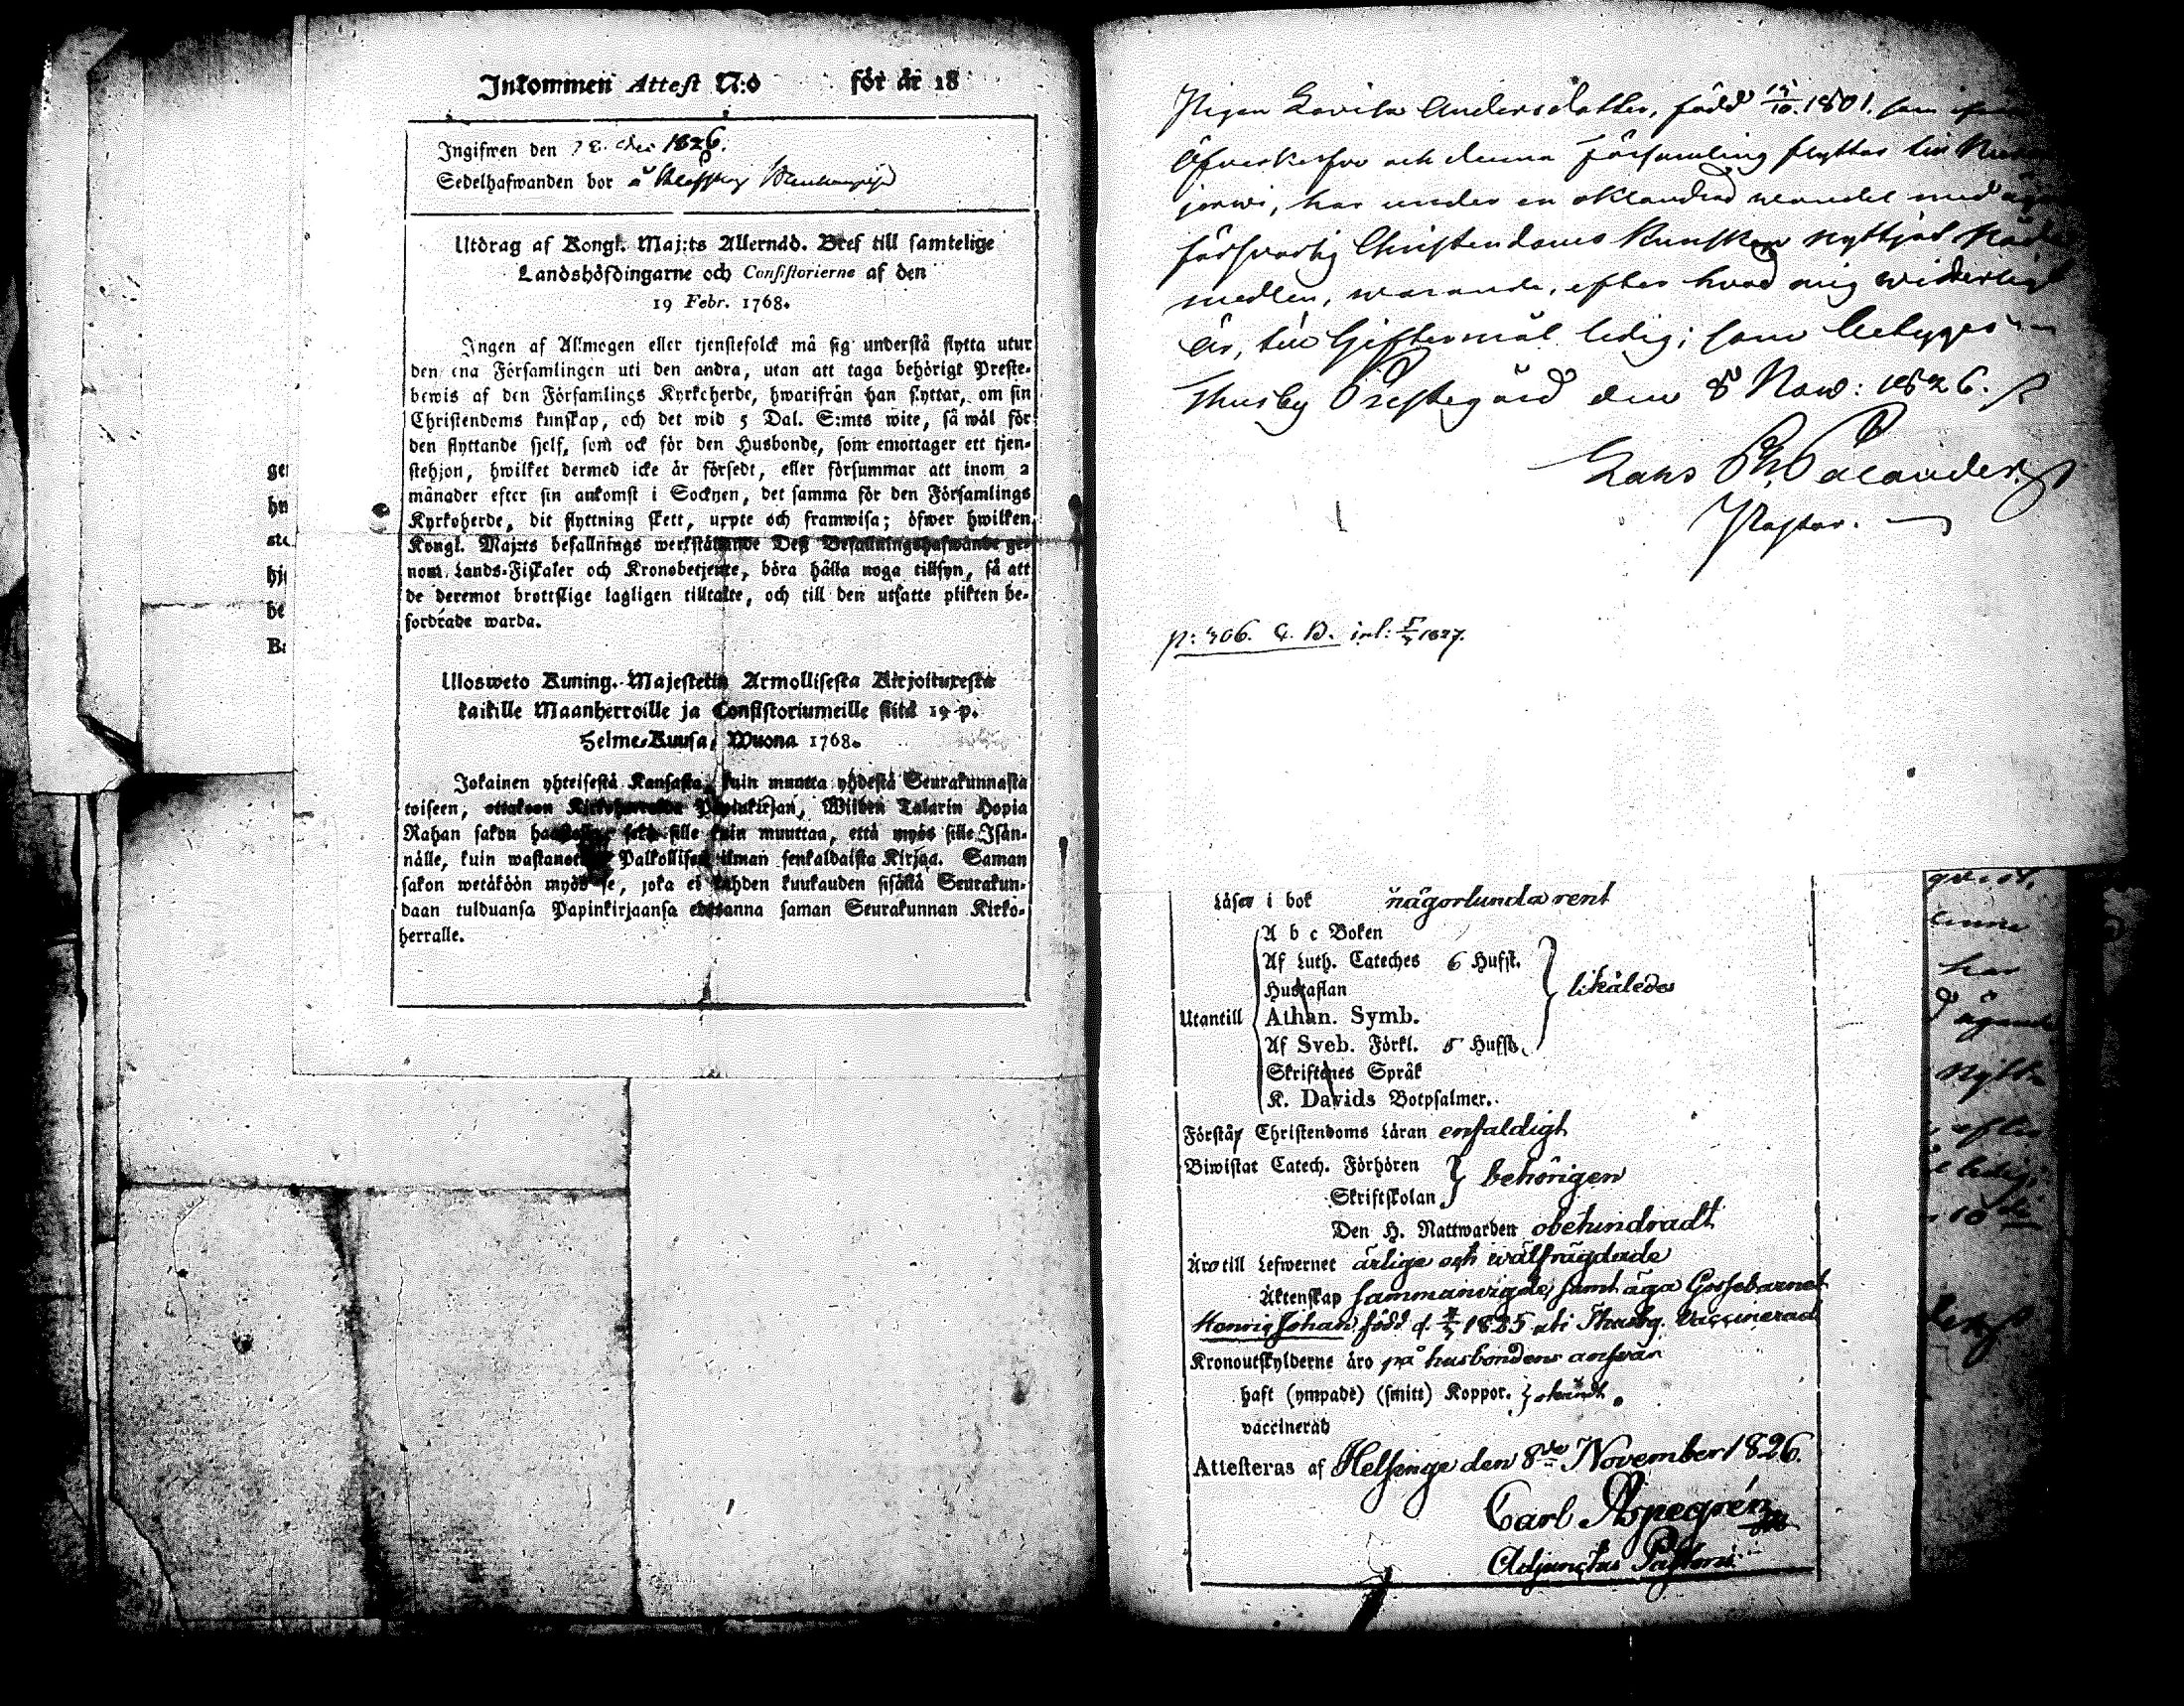 Inkommen Attest N:o för år 18
Ingifwen den 1826.
Sedelhafwanden bor å
Utdrag af Kongl. Maj:ts Allernåd. Bref till samtelige
Landshöfdingarne och Consistorierne af den
19 Febr. 1768.
Ingen af Allmogen eller tjenstefolck må sig understå flytta utur
den ena Församlingen uti den andra, utan att taga behörigt Preste-
bewis af den Församlings Kyrkoherde, hwarifrån han flyttar, om sin
Christendoms kunskap, och det wid 5 Dal. S:mts wite, så wäl för
den flyttande sjelf, som ock för den Husbonde, som emottager ett tjen-
stehjon, hwilket dermed icke är försedt, eller försummar att inom 2
månader efter sin ankomst i Socknen, det samma för den Församlings
Kyrkoherde, dit flyttning skett, uppte och framwisa; öfwer hwilken
Kongl. Maj:ts befallnings werkställande Deß Befallningshafwande ge-
nom Lands-Fiskaler och Kronobetjente, böra hålla noga tillsyn, så att
de deremot brottslige lagligen tilltalte, och till den utsatte plikten be-
fordrade warda.
Ulosweto Kuning. Majestetin Armollisesta Kirjoituresta
kaikille Maanherroille ja Consistoriumeille siitä 19 p.
Helme-Kuusa, Wuona 1768.
Jokainen yhteisestä Kansasta, kuin muutta yhdestä Seurakunnasta
toiseen, ottakoon Kirkoherralda Papinkirjan, Wiiden Talarin Hopia
Rahan sakon sekä sille kuin muuttaa, että myös sille Isän-
nälle, kuin Palkollisen ilman senkaldaista Kirjaa. Saman
sakon wetäköön myös se, joka ei kahden kuukauden sisällä Seurakun-
daan tulduansa Papinkirjaansa edesanna saman Seurakunnan Kirko-
herralle.
Pigan Lovisa Andersdotter, född 15/10. 1801. som
och denna Församling flyttar till
jerwi, har under en oklandrad wandel med
försvarlig Christendoms kunskap nyttjat Nåde
medlen, warande, efter hvad mig witterligt
är, till Giftermål ledig; som betygas
Thusby Prestegård den 8 Now: 1826.
Lars Ph. Palander
Pastor.
p: 306. C. B. inl: 1827.
Läser i bok någorlunda rent
A b c Boken
Af Luth. Cateches 6 Hufst.
Hustaflan
likåledes
Utantill Athan. Symb.
Af Sveb. Förkl. 5 Hufst.
Skriftenes Språk
K. Davids Botpsalmer.
Förstår Christendoms Läran enfaldigt
Biwistat Catech. Förhören
behörigen
Skriftskolan
Den H. Nattwarden obehindradt
Äro till Lefwernet ärlige och wälfrägdade
Äktenskap sammanvigde, samt äga Gossebarnet
Henric Johan född d. 1825 uti Thusby. Vaccinerad
Kronoutskylderne äro på husbondens ansvar
haft (ympade) (smitt) Koppor. okändt.
vaccinerad
Attesteras af Helsinge den 8de November 1826.
Carl Aspegrén
Adjunctus Pastoris